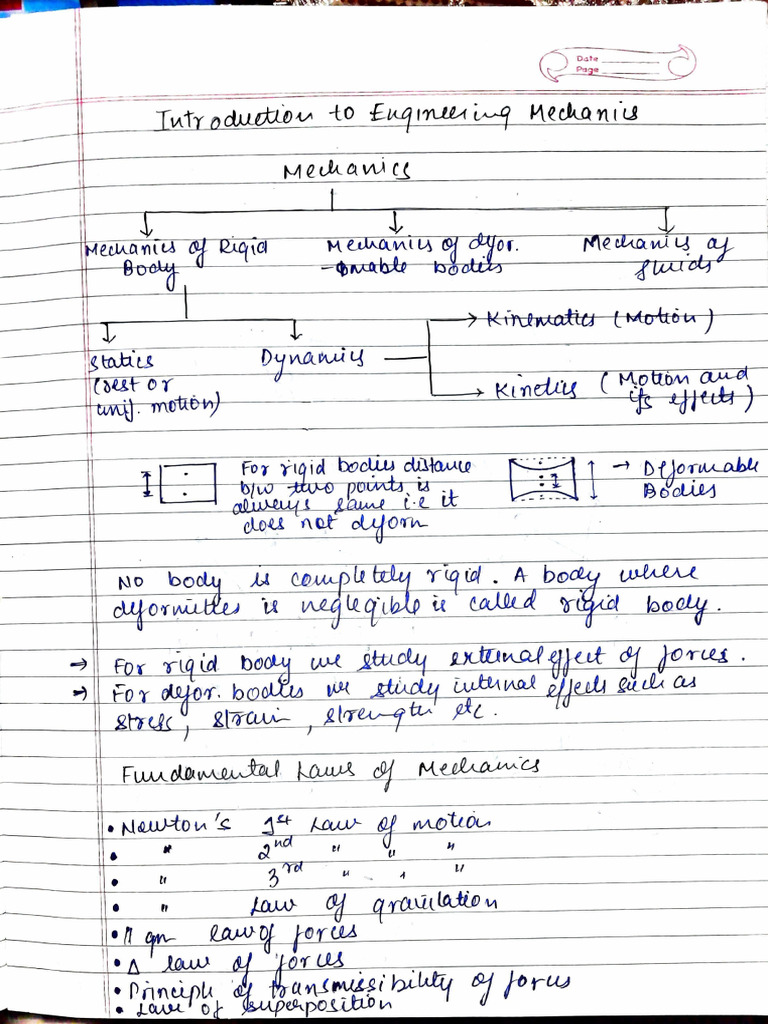 Date
Page
Introduction to Engineering Mechanics
Mechanics
Mechanics of Rigid Body
Mechanics of defor-mable bodies
Mechanics of fluids
Statics (rest or unif. motion)
Dynamics
Kinematics (Motion)
Kinetics (Motion and its effects)
For rigid bodies distance
b/w two points is
always same i.e it
does not deform
→ Deformable
Bodies
No body is completely rigid. A body where
deformities is neglegible is called rigid body.
→ For rigid body we study external effect of forces.
→ For defor. bodies we study internal effects such as
stress, strain, strength etc.
Fundamental Laws of Mechanics
• Newton's 1st Law of motion
• " 2nd " " "
• " 3rd " " "
• " Law of gravitation
• gm law of forces
• Δ law of forces
• Principle of transmissibility of forces
• Law of superposition